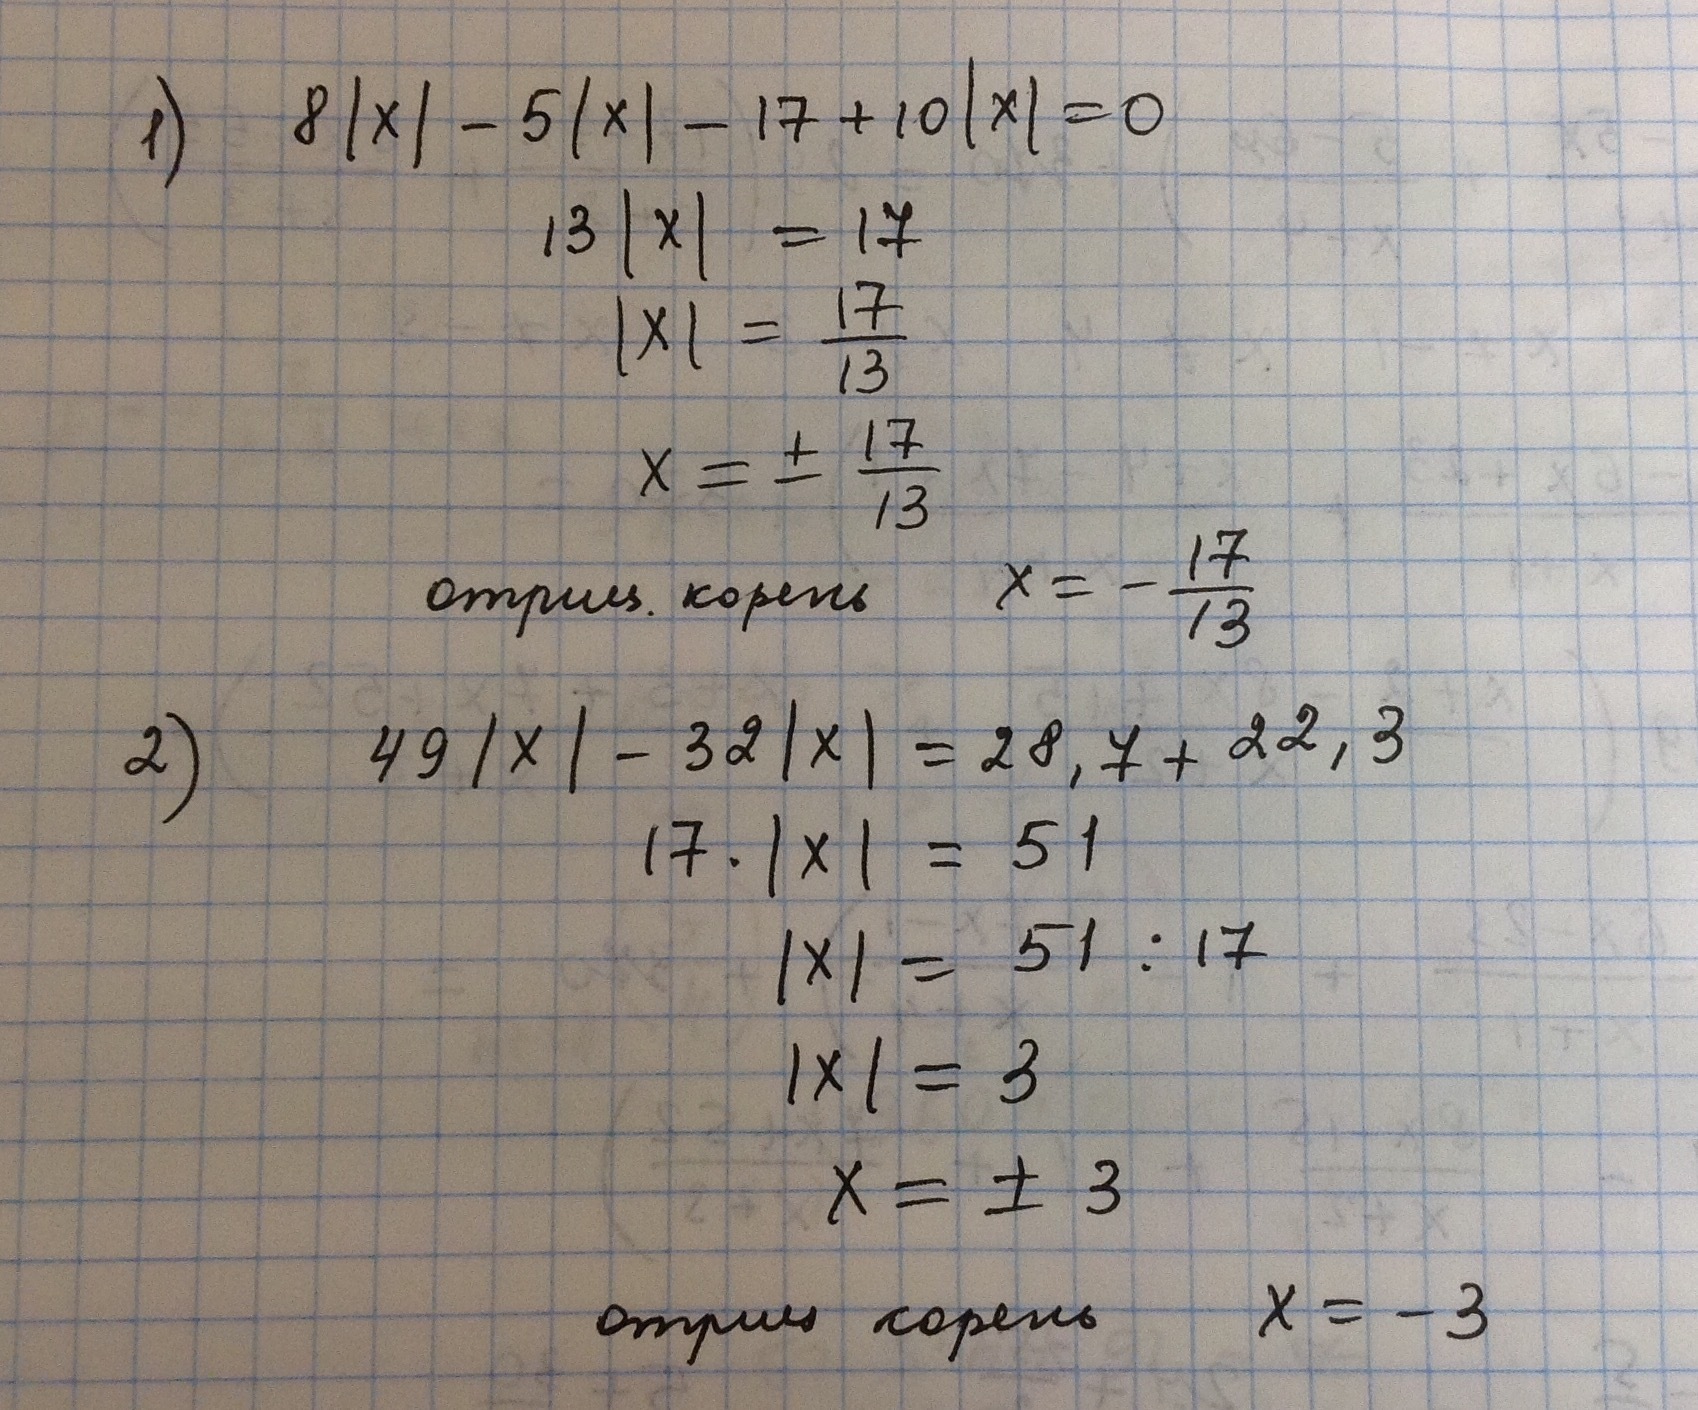 1) 8|x| - 5|x| - 17 + 10|x| = 0
13|x| = 17
|x| = 17/13
x = ± 17/13
отриц. корень x = - 17/13
2) 49|x| - 32|x| = 28,7 + 22,3
17·|x| = 51
|x| = 51 : 17
|x| = 3
x = ± 3
отриц корень x = -3